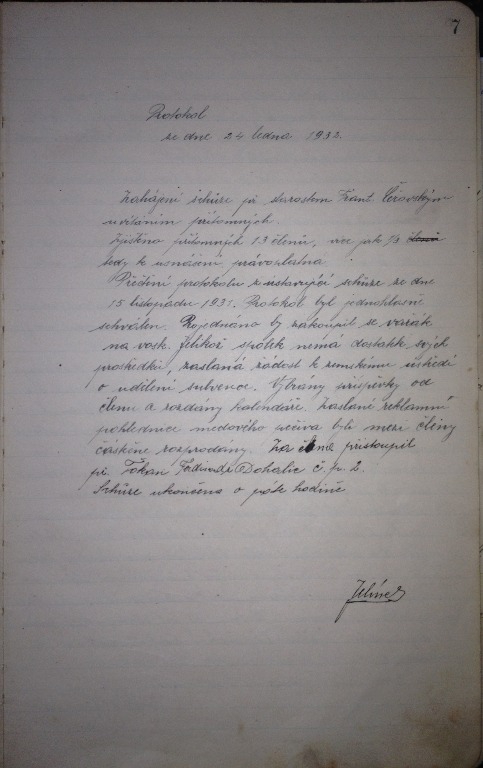 7
Protokol
ze dne 24 ledna 1932.
Zahájení schůze př. starostem Frant. Čeřovským
uvítáním přítomných.
Zjištěno přítomných 13 členů, více jak 1/3 členů
tedy k usnášení právoplatna
Přečtení protokolu z ustavující schůze ze dne
15 listopadu 1931. Protokol byl jednohlasně
schválen. Projednáno by zakoupil se vařák
na vosk. Jelikož spolek nemá dostatek svých
prostředků, zaslaná žádost k zemskému ústředí
o udělení subvence. Vybrány příspěvky od
členů a rozdány kalendáře. Zaslané reklamní
pohlednice medového pečiva byli mezi členy
částečně rozprodány. Za člena přistoupil
př. Ferdinand Dohalic č. p. 2.
Schůze ukončena o páté hodině